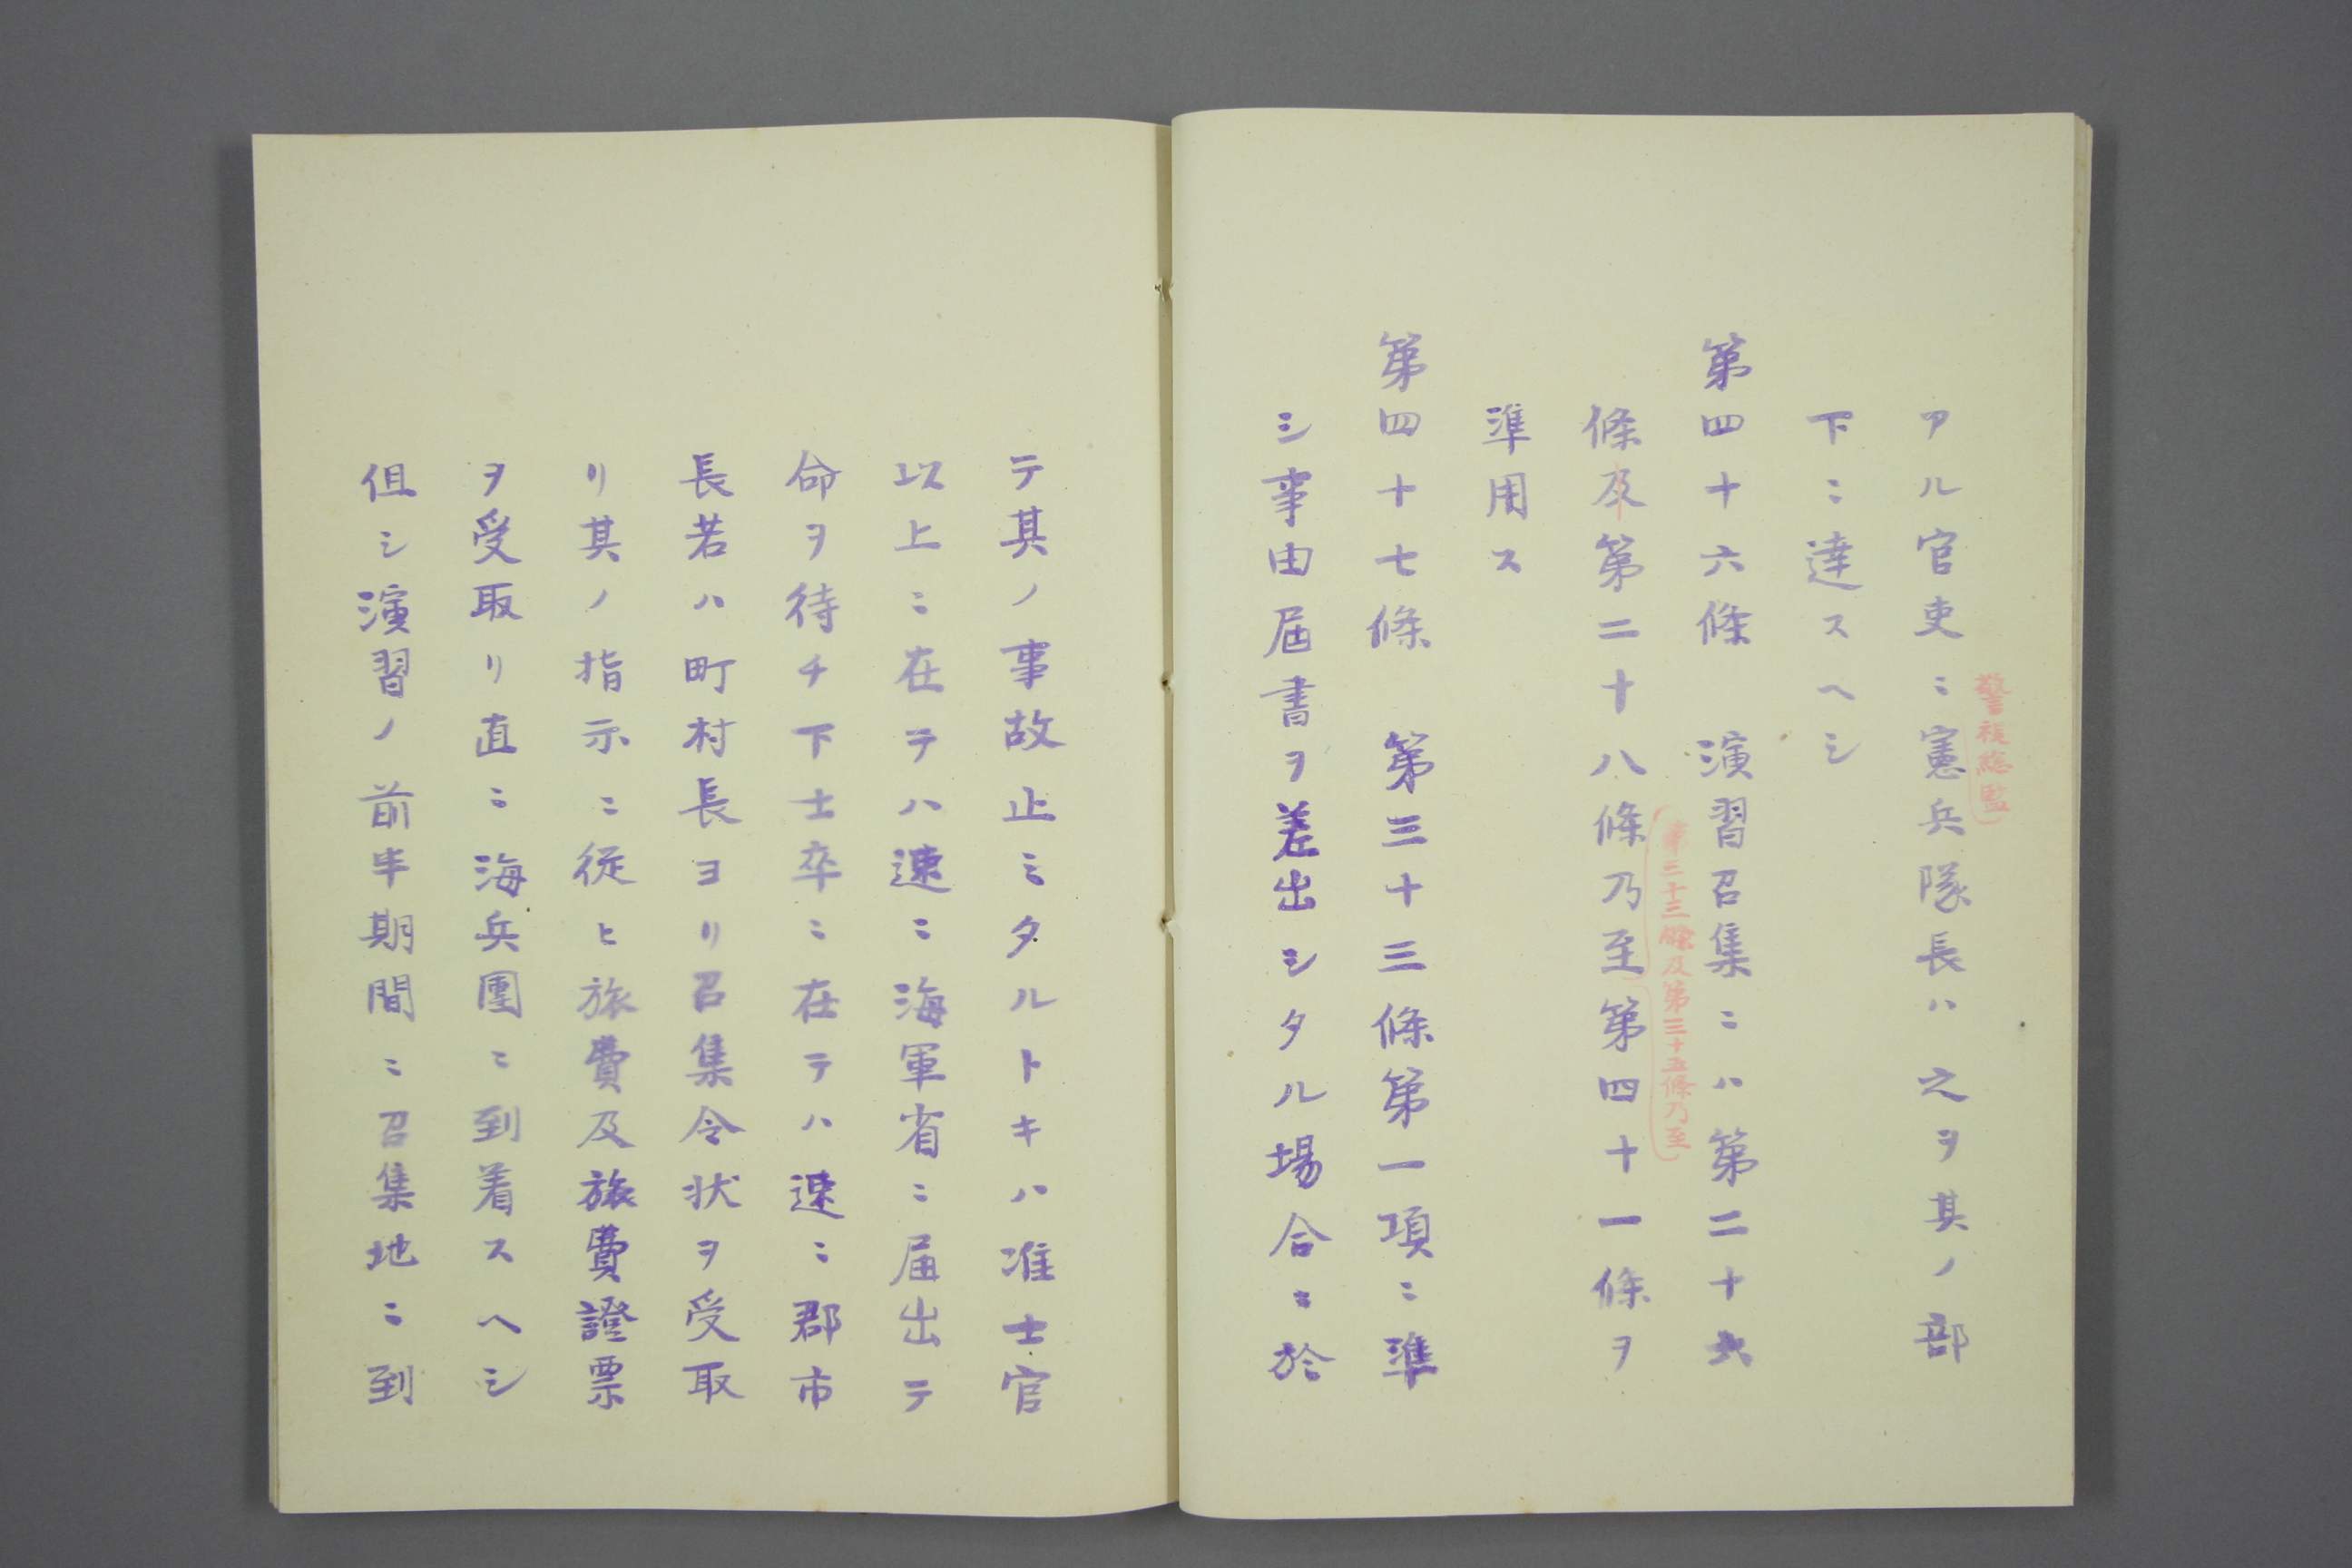 アル官吏ニ憲兵隊長ハ之ヲ其ノ部
警視総監
下ニ達スヘシ
第四十六條　演習召集ニハ第二十六
條及第二十八條乃至第四十一條ヲ
第二十三條及第三十五條乃至
準用ス
第四十七條　第三十三條第一項ニ準
シ事由届書ヲ差出シタル場合ニ於
テ其ノ事故止ミタルトキハ准士官
以上ニ在テハ速ニ海軍省ニ届出テ
命ヲ待チ下士卒ニ在テハ速ニ郡市
長若ハ町村長ヨリ召集令状ヲ受取
リ其ノ指示ニ従ヒ旅費及旅費證票
ヲ受取リ直ニ海兵團ニ到着スヘシ
但シ演習ノ前半期間ニ召集地ニ到